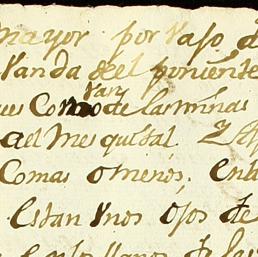 mayor por vaso, d
vanda del poniente
ues Como de las minas
ael Mesquital. Z
Comas o menos; en
Estan vnos ojos de